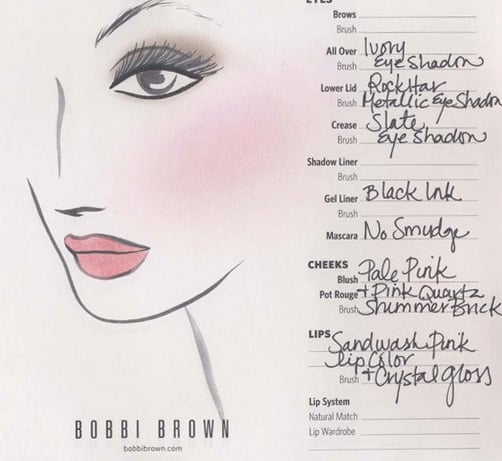 EYES
Brows
Brush
All Over Ivory
Brush Eye Shadow
Lower Lid Rock Star
Brush Metallic Eye Shadow
Crease Slate
Brush Eye Shadow
Shadow Liner
Brush
Gel Liner Black Ink
Brush
Mascara No Smudge
CHEEKS
Blush Pale Pink
Pot Rouge + Pink Quartz
Brush Shimmer Brick
LIPS Sandwash Pink
Lip Color
Brush + Crystal gloss
Lip System
Natural Match
Lip Wardrobe
BOBBI BROWN
bobbibrown.com